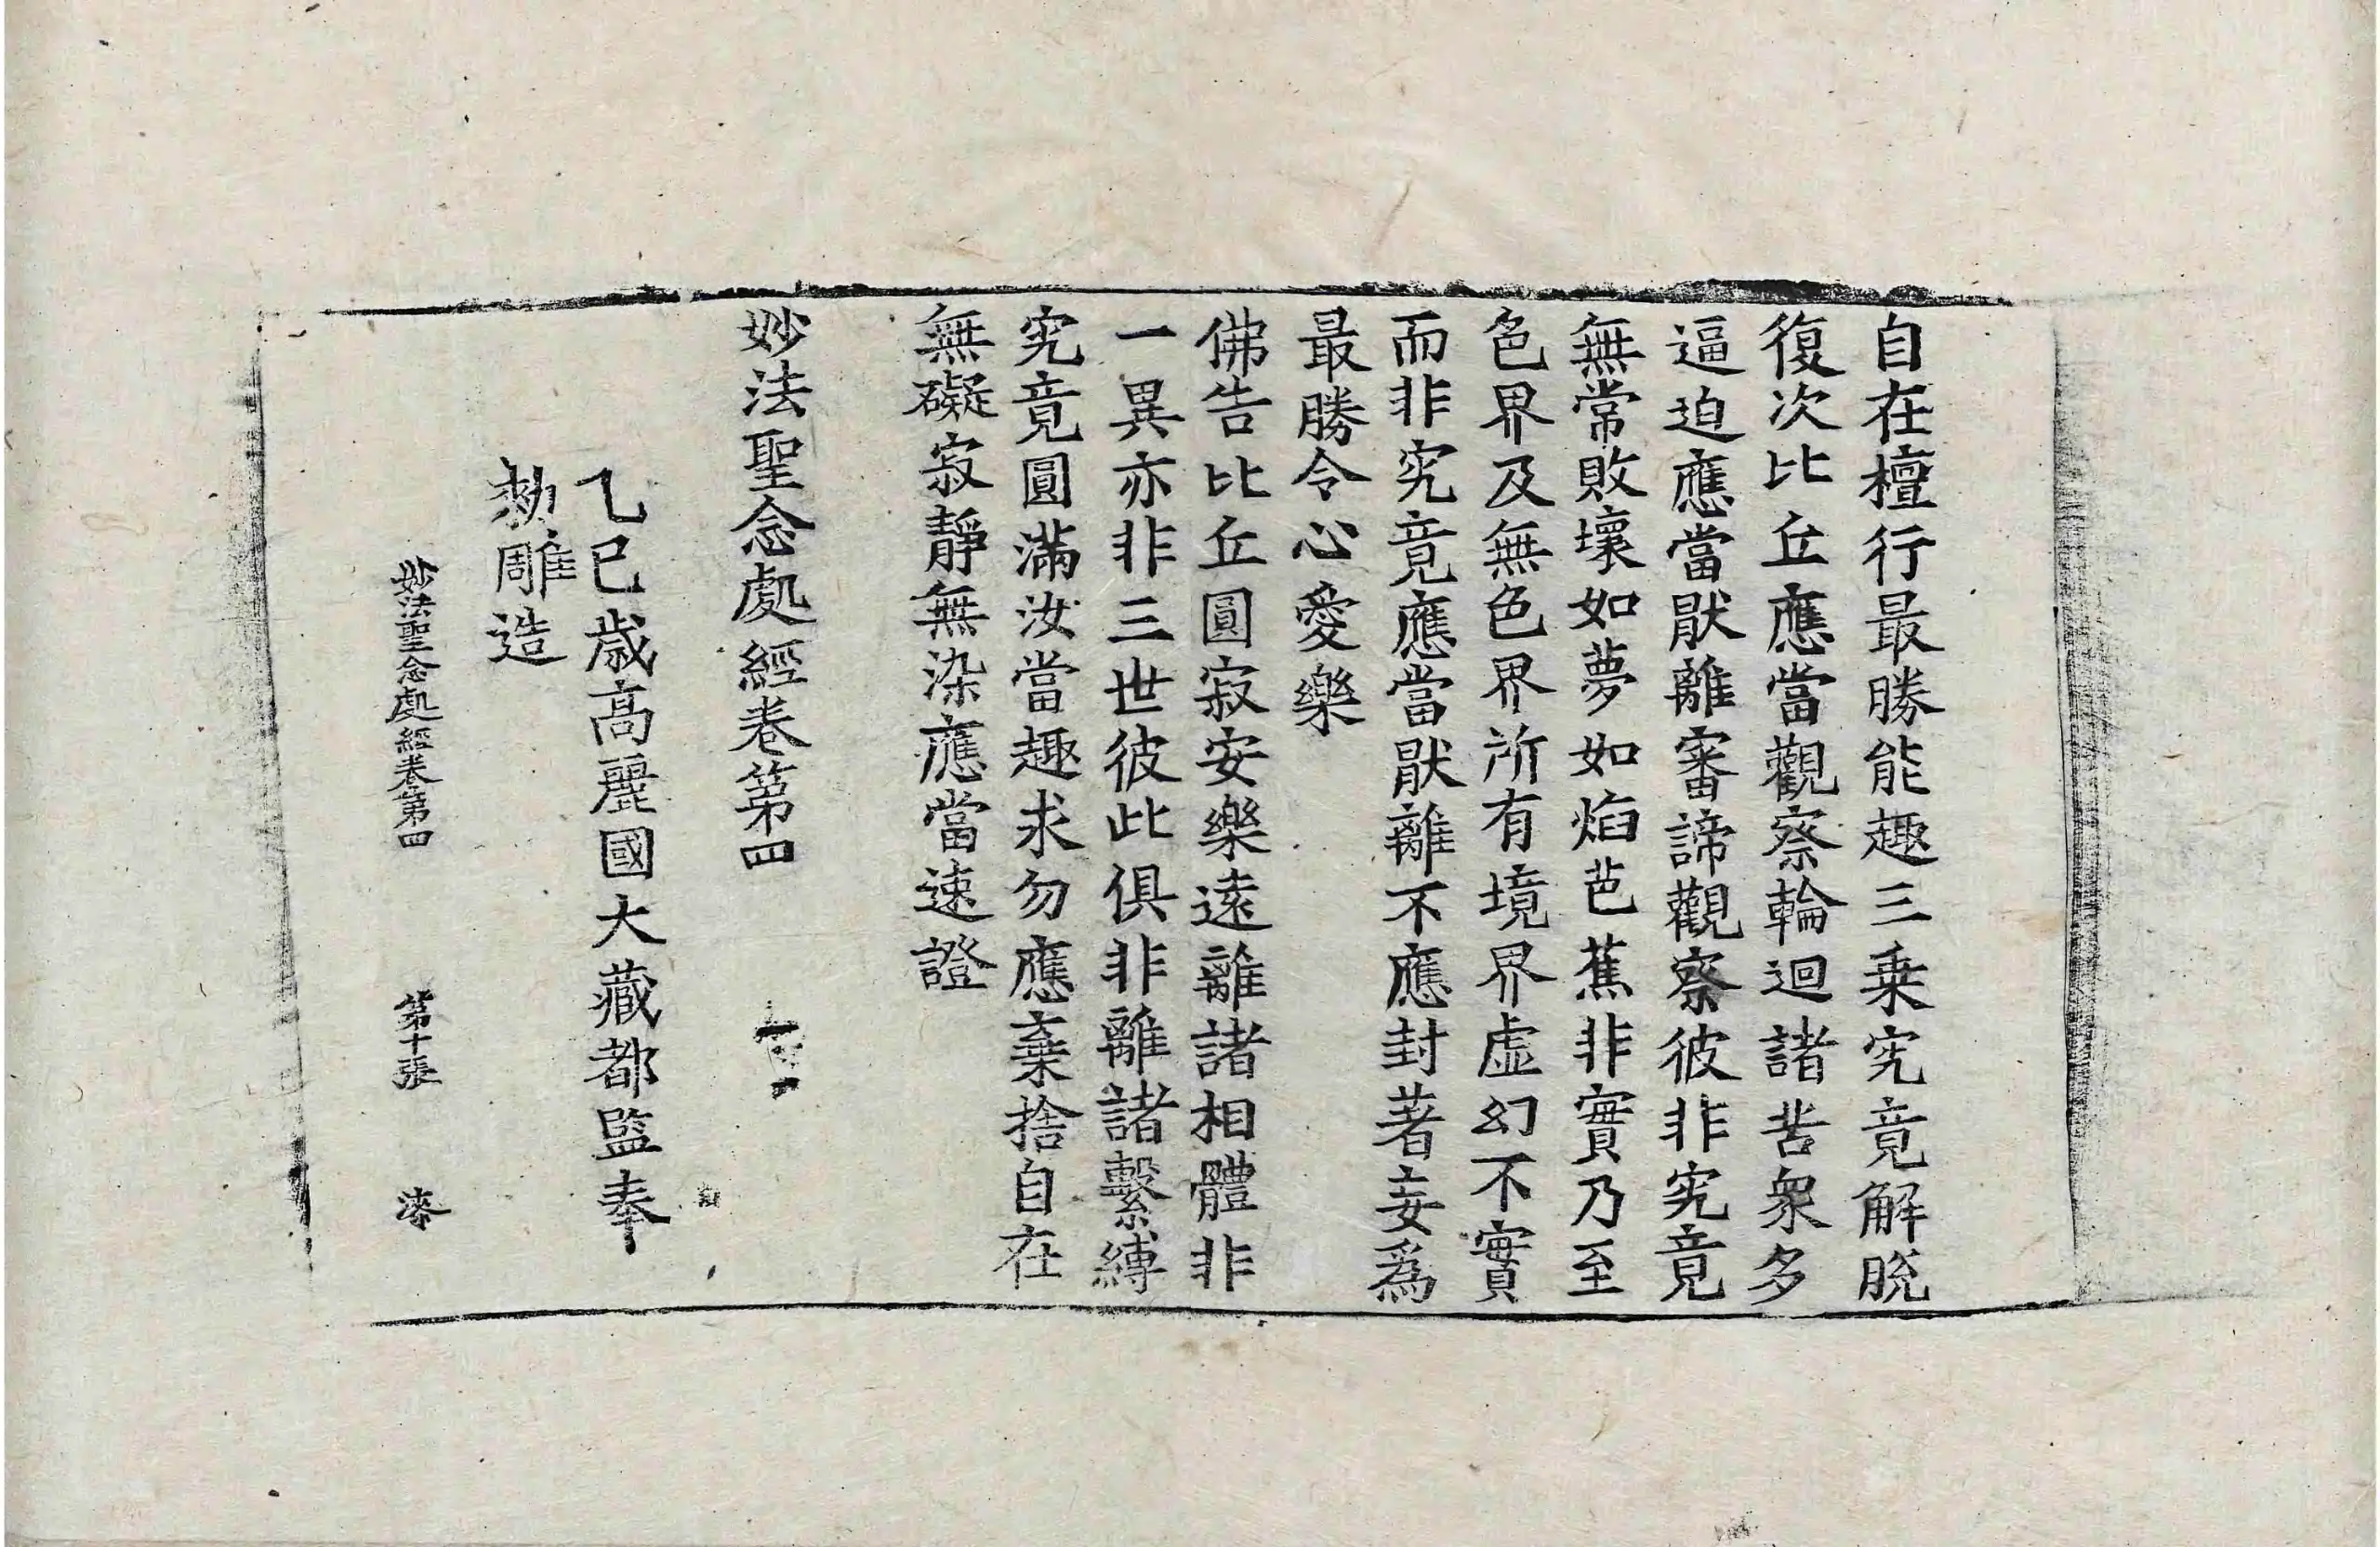 自在檀行最勝能趣三乗究竟解脫
復次比丘應當觀察輪迴諸苦衆多
逼迫應當猒離審諦觀察彼非究竟
無常敗壞如夢如焰芭蕉非實乃至
色界及無色界所有境界虛幻不實
而非究竟應當猒離不應封著妄爲
最勝令心愛樂
佛告比丘圓寂安樂遠離諸相體非
一異亦非三世彼此俱非離諸繫縛
究竟圓滿汝當趣求勿應棄捨自在
無礙寂靜無染應當速證
妙法聖念處經卷第四
乙巳歲高麗國大藏都監奉
勑雕造
妙法聖念處經卷第四 第十張